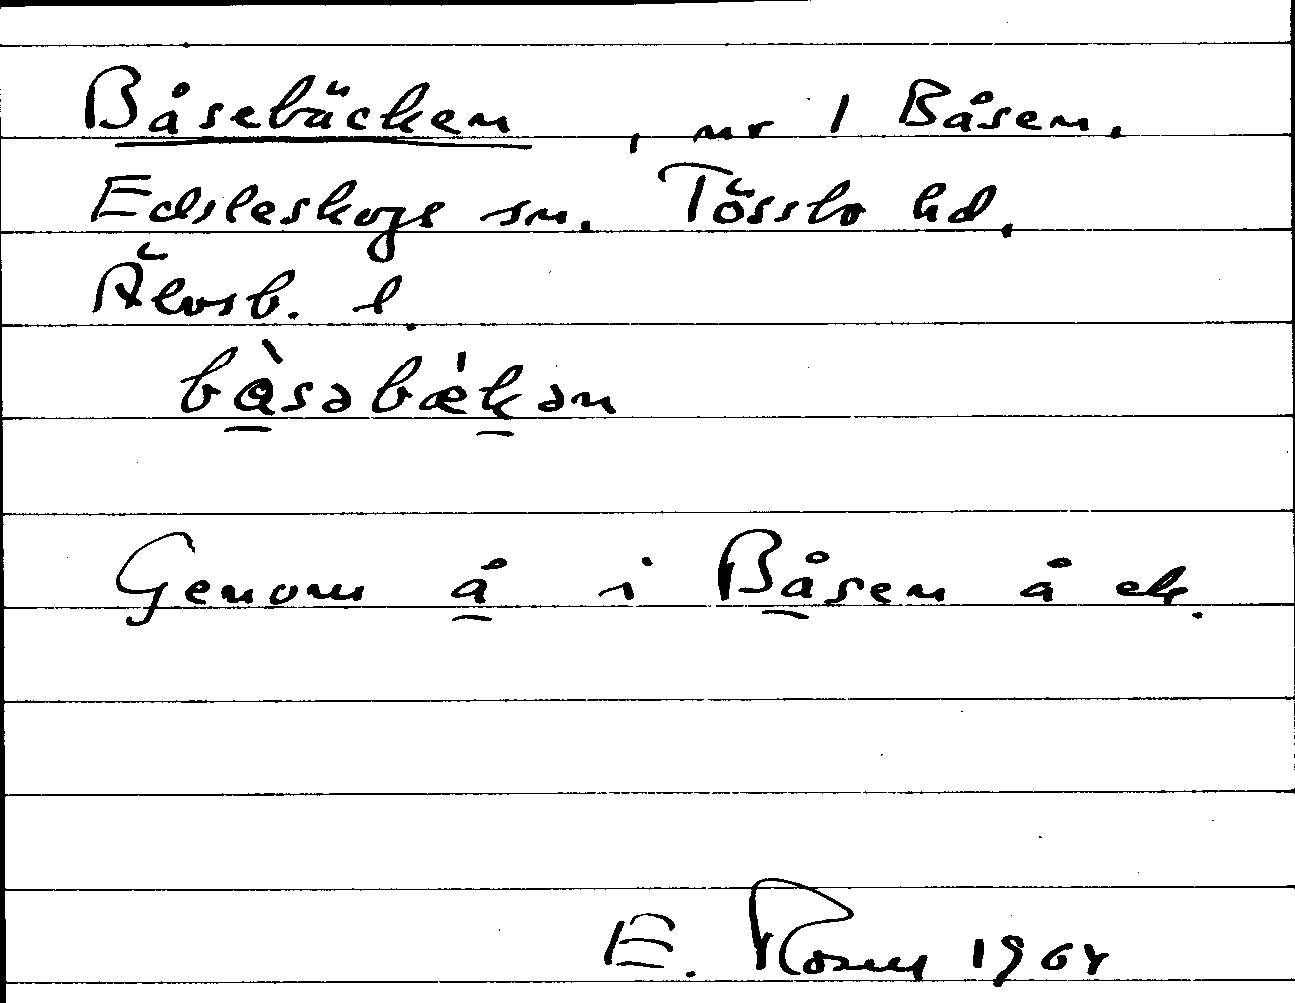 Båsebäcken, nr 1 Båsen.
Edsleskogs sn. Tössbo hd.
Älvsb. l.
bàsəbækən
Genom å i Båsen å ek.
E. Rosell 1964